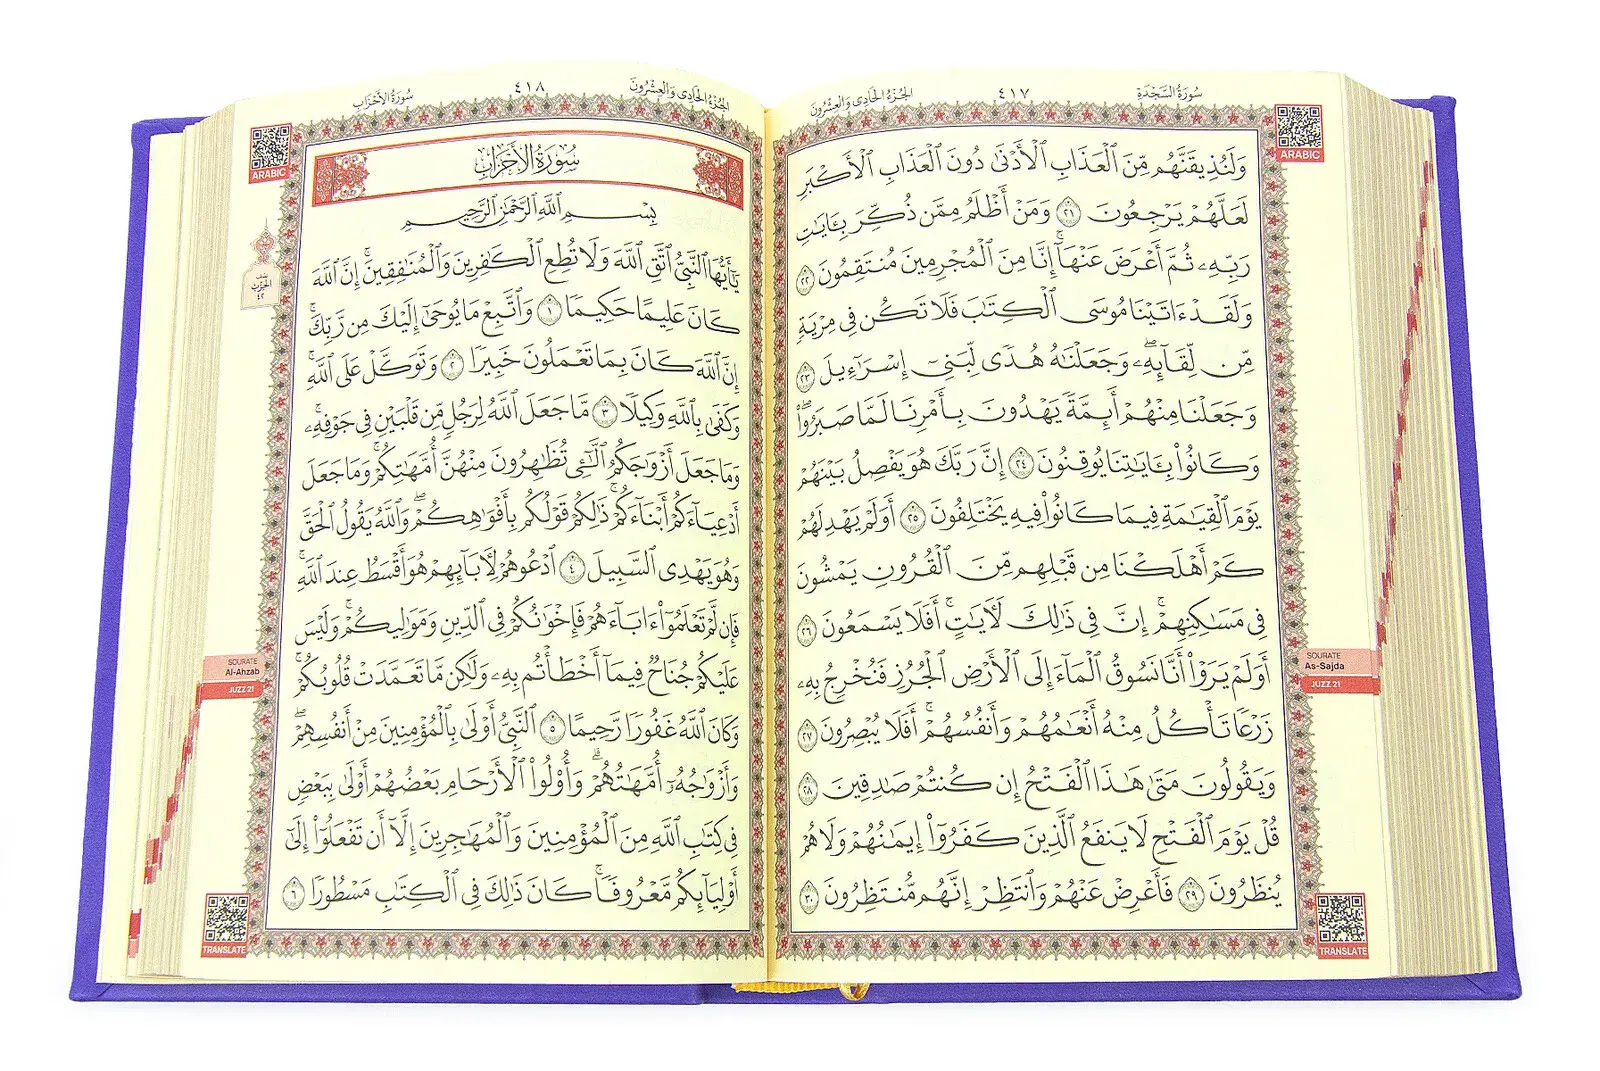 سُورَةُ السَّجْدَةِ
٤١٧
الجُزْءُ الحَادِى وَالْعِشْرُونَ
ARABIC
وَلَنُذِيقَنَّهُم مِّنَ ٱلْعَذَابِ ٱلْأَدْنَىٰ دُونَ ٱلْعَذَابِ ٱلْأَكْبَرِ
لَعَلَّهُمْ يَرْجِعُونَ ٢١ وَمَنْ أَظْلَمُ مِمَّن ذُكِّرَ بِـَٔايَٰتِ
رَبِّهِۦ ثُمَّ أَعْرَضَ عَنْهَآ ۚ إِنَّا مِنَ ٱلْمُجْرِمِينَ مُنتَقِمُونَ ٢٢
وَلَقَدْ ءَاتَيْنَا مُوسَى ٱلْكِتَٰبَ فَلَا تَكُن فِى مِرْيَةٍ
مِّن لِّقَآئِهِۦ ۖ وَجَعَلْنَٰهُ هُدًى لِّبَنِىٓ إِسْرَٰٓءِيلَ ٢٣
وَجَعَلْنَا مِنْهُمْ أَئِمَّةً يَهْدُونَ بِأَمْرِنَا لَمَّا صَبَرُوا۟ ۖ
وَكَانُوا۟ بِـَٔايَٰتِنَا يُوقِنُونَ ٢٤ إِنَّ رَبَّكَ هُوَ يَفْصِلُ بَيْنَهُمْ
يَوْمَ ٱلْقِيَٰمَةِ فِيمَا كَانُوا۟ فِيهِ يَخْتَلِفُونَ ٢٥ أَوَلَمْ يَهْدِ لَهُمْ
كَمْ أَهْلَكْنَا مِن قَبْلِهِم مِّنَ ٱلْقُرُونِ يَمْشُونَ
فِى مَسَٰكِنِهِمْ ۚ إِنَّ فِى ذَٰلِكَ لَـَٔايَٰتٍ ۖ أَفَلَا يَسْمَعُونَ ٢٦
أَوَلَمْ يَرَوْا۟ أَنَّا نَسُوقُ ٱلْمَآءَ إِلَى ٱلْأَرْضِ ٱلْجُرُزِ فَنُخْرِجُ بِهِۦ
زَرْعًا تَأْكُلُ مِنْهُ أَنْعَٰمُهُمْ وَأَنفُسُهُمْ ۖ أَفَلَا يُبْصِرُونَ ٢٧
وَيَقُولُونَ مَتَىٰ هَٰذَا ٱلْفَتْحُ إِن كُنتُمْ صَٰدِقِينَ ٢٨
قُلْ يَوْمَ ٱلْفَتْحِ لَا يَنفَعُ ٱلَّذِينَ كَفَرُوٓا۟ إِيمَٰنُهُمْ وَلَا هُمْ
يُنظَرُونَ ٢٩ فَأَعْرِضْ عَنْهُمْ وَٱنتَظِرْ إِنَّهُم مُّنتَظِرُونَ ٣٠
SOURATE
As-Sajda
JUZZ 21
TRANSLATE
الجُزْءُ الحَادِى وَالْعِشْرُونَ
٤١٨
سُورَةُ الأَحْزَابِ
ARABIC
سُورَةُ الأَحْزَابِ
بِسْمِ ٱللَّهِ ٱلرَّحْمَٰنِ ٱلرَّحِيمِ
يَٰٓأَيُّهَا ٱلنَّبِىُّ ٱتَّقِ ٱللَّهَ وَلَا تُطِعِ ٱلْكَٰفِرِينَ وَٱلْمُنَٰفِقِينَ ۗ إِنَّ ٱللَّهَ
كَانَ عَلِيمًا حَكِيمًا ١ وَٱتَّبِعْ مَا يُوحَىٰٓ إِلَيْكَ مِن رَّبِّكَ ۚ
إِنَّ ٱللَّهَ كَانَ بِمَا تَعْمَلُونَ خَبِيرًا ٢ وَتَوَكَّلْ عَلَى ٱللَّهِ ۚ
وَكَفَىٰ بِٱللَّهِ وَكِيلًا ٣ مَّا جَعَلَ ٱللَّهُ لِرَجُلٍ مِّن قَلْبَيْنِ فِى جَوْفِهِۦ ۚ
وَمَا جَعَلَ أَزْوَٰجَكُمُ ٱلَّٰٓـِٔى تُظَٰهِرُونَ مِنْهُنَّ أُمَّهَٰتِكُمْ ۚ وَمَا جَعَلَ
أَدْعِيَآءَكُمْ أَبْنَآءَكُمْ ۚ ذَٰلِكُمْ قَوْلُكُم بِأَفْوَٰهِكُمْ ۖ وَٱللَّهُ يَقُولُ ٱلْحَقَّ
وَهُوَ يَهْدِى ٱلسَّبِيلَ ٤ ٱدْعُوهُمْ لِـَٔابَآئِهِمْ هُوَ أَقْسَطُ عِندَ ٱللَّهِ ۚ
فَإِن لَّمْ تَعْلَمُوٓا۟ ءَابَآءَهُمْ فَإِخْوَٰنُكُمْ فِى ٱلدِّينِ وَمَوَٰلِيكُمْ ۚ وَلَيْسَ
عَلَيْكُمْ جُنَاحٌ فِيمَآ أَخْطَأْتُم بِهِۦ وَلَٰكِن مَّا تَعَمَّدَتْ قُلُوبُكُمْ ۚ
وَكَانَ ٱللَّهُ غَفُورًا رَّحِيمًا ٥ ٱلنَّبِىُّ أَوْلَىٰ بِٱلْمُؤْمِنِينَ مِنْ أَنفُسِهِمْ ۖ
وَأَزْوَٰجُهُۥٓ أُمَّهَٰتُهُمْ ۗ وَأُو۟لُوا۟ ٱلْأَرْحَامِ بَعْضُهُمْ أَوْلَىٰ بِبَعْضٍ
فِى كِتَٰبِ ٱللَّهِ مِنَ ٱلْمُؤْمِنِينَ وَٱلْمُهَٰجِرِينَ إِلَّآ أَن تَفْعَلُوٓا۟ إِلَىٰٓ
أَوْلِيَآئِكُم مَّعْرُوفًا ۚ كَانَ ذَٰلِكَ فِى ٱلْكِتَٰبِ مَسْطُورًا ٦
نصف
الحزب
٤٢
SOURATE
Al-Ahzab
JUZZ 21
TRANSLATE